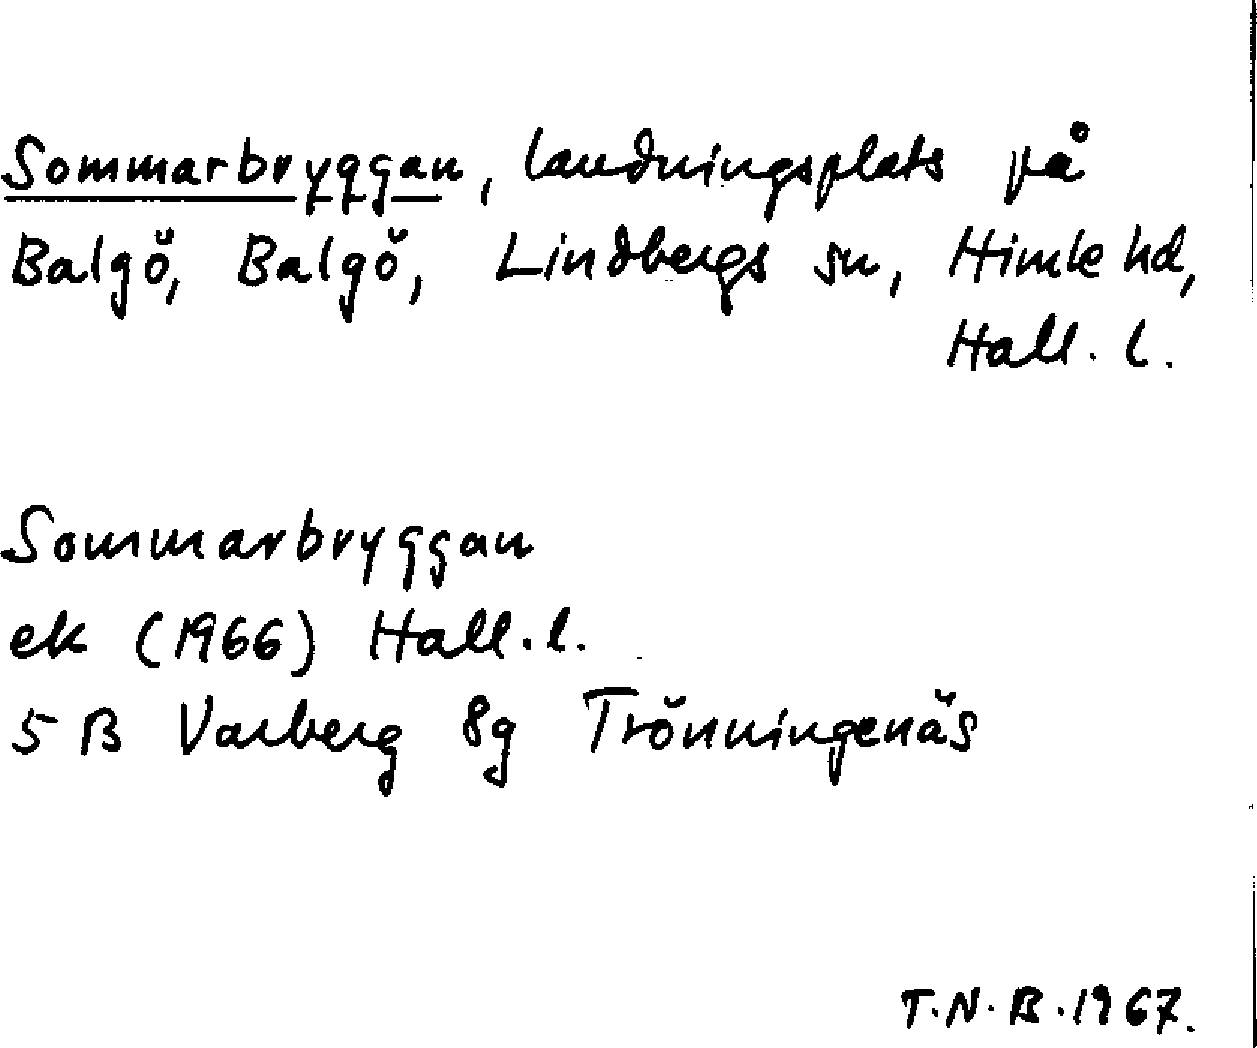 Sommarbryggan, landningsplats på
Balgö, Balgö, Lindbergs sn, Himle hd,
Hall. l.
Sommarbryggan
ek (1966) Hall. l.
5 B Varberg 8g Trönningenäs
T.N.B. 1967.